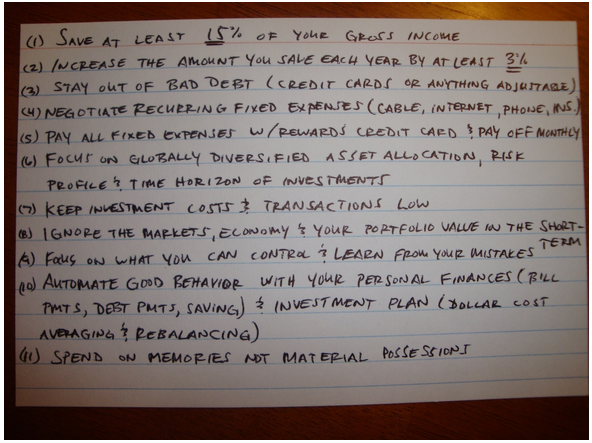 (1) SAVE AT LEAST 15% OF YOUR GROSS INCOME
(2) INCREASE THE AMOUNT YOU SAVE EACH YEAR BY AT LEAST 3%
(3) STAY OUT OF BAD DEBT (CREDIT CARDS OR ANYTHING ADJUSTABLE)
(4) NEGOTIATE RECURRING FIXED EXPENSES (CABLE, INTERNET, PHONE, INS.)
(5) PAY ALL FIXED EXPENSES W/REWARDS CREDIT CARD & PAY OFF MONTHLY
(6) FOCUS ON GLOBALLY DIVERSIFIED ASSET ALLOCATION, RISK
PROFILE & TIME HORIZON OF INVESTMENTS
(7) KEEP INVESTMENT COSTS & TRANSACTIONS LOW
(8) IGNORE THE MARKETS, ECONOMY & YOUR PORTFOLIO VALUE IN THE SHORT-
TERM
(9) FOCUS ON WHAT YOU CAN CONTROL & LEARN FROM YOUR MISTAKES
(10) AUTOMATE GOOD BEHAVIOR WITH YOUR PERSONAL FINANCES (BILL
PMTS, DEBT PMTS, SAVING) & INVESTMENT PLAN (DOLLAR COST
AVERAGING & REBALANCING)
(11) SPEND ON MEMORIES NOT MATERIAL POSSESSIONS